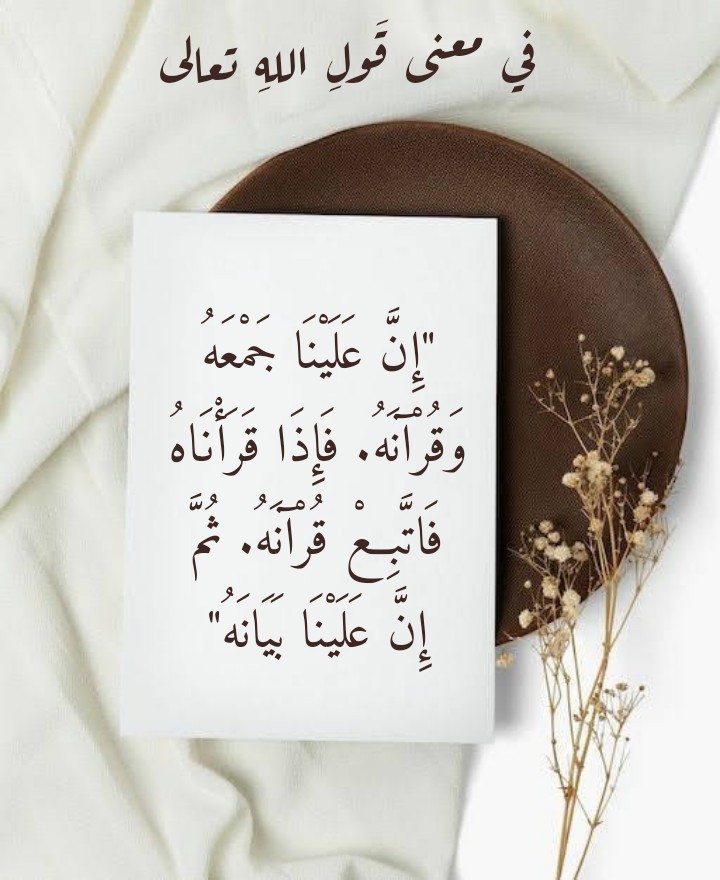 في معنى قَولِ اللهِ تعالى
"إِنَّ عَلَيْنَا جَمْعَهُ
وَقُرْآنَهُ. فَإِذَا قَرَأْنَاهُ
فَاتَّبِعْ قُرْآنَهُ. ثُمَّ
إِنَّ عَلَيْنَا بَيَانَهُ"